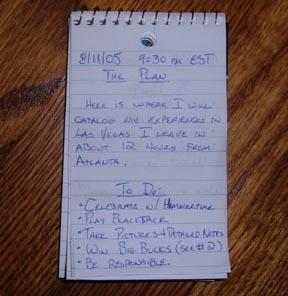 8/11/05 9:30 PM EST
THE PLAN
HERE IS WHERE I WILL
CATALOG MY EXPERIENCES IN
LAS VEGAS. I LEAVE IN
ABOUT 12 HOURS FROM
ATLANTA.
TO DO:
• CELEBRATE W/ HAMMERTIME
• PLAY BLACKJACK
• TAKE PICTURES + DETAILED NOTES
• WIN BIG BUCKS (SEE #2)
• BE RESPONSIBLE.